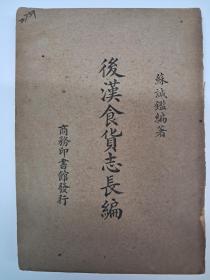 蘇誠鑑編著
後漢食貨志長編
商務印書館發行